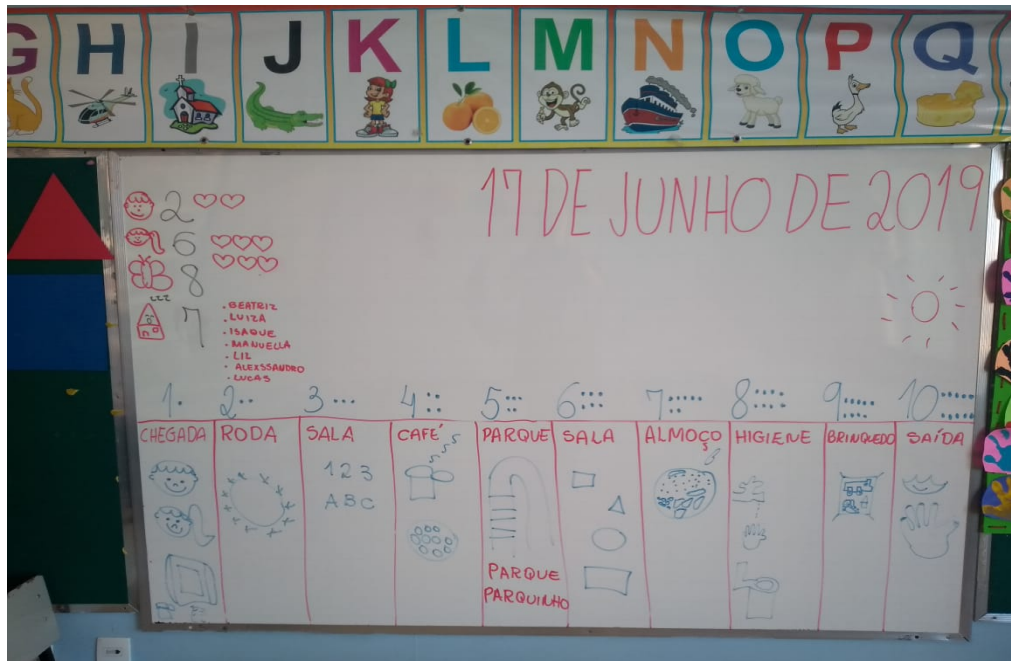 G H I J K L M N O P Q
17 DE JUNHO DE 2019
2
6
8
zzz
7
• BEATRIZ
• LUIZA
• ISAQUE
• MANUELLA
• LIZ
• ALEXSSANDRO
• LUCAS
1 2 3 4 5 6 7 8 9 10
CHEGADA RODA SALA CAFÉ PARQUE SALA ALMOÇO HIGIENE BRINQUEDO SAÍDA
123
ABC
PARQUE
PARQUINHO